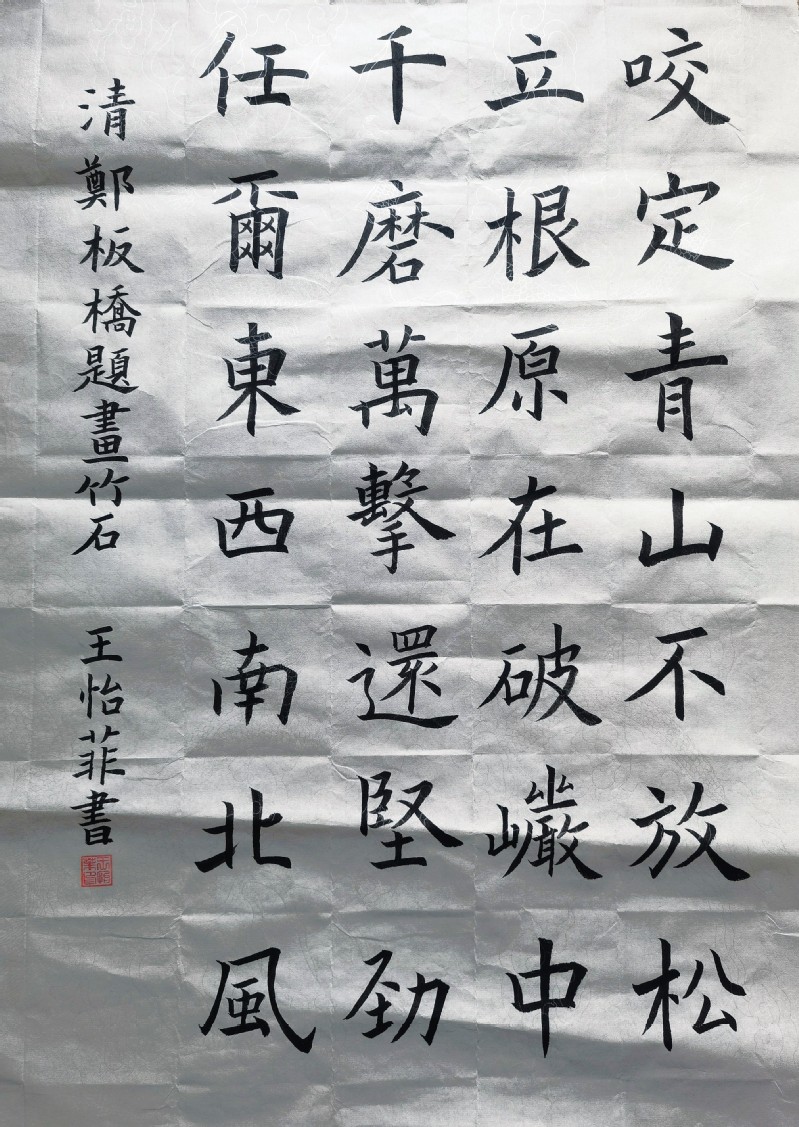 咬定青山不放松
立根原在破巖中
千磨萬擊還堅劲
任爾東西南北風
清鄭板橋題畫竹石 王怡菲書